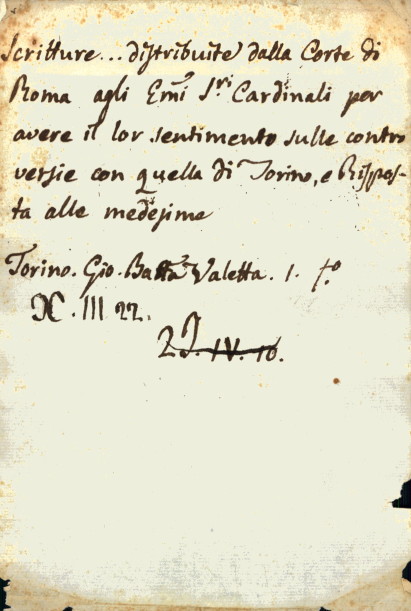 Scritture... distribuite dalla Corte di
Roma agli Emi Sri Cardinali per
avere il lor sentimento sulle contro
versie con quella di Torino, e Rispos-
ta alle medesime
Torino. Gio. Batta Valetta. 1. fo
X. III 22.
IV. 10.